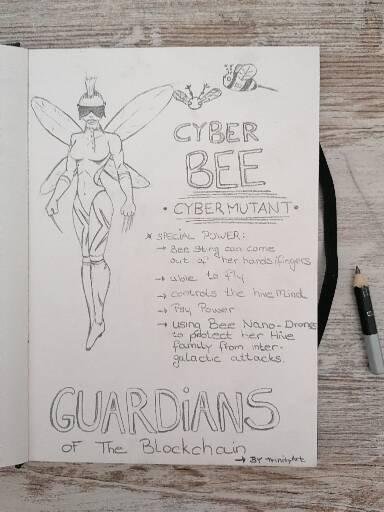 CYBER
BEE
• CYBERMUTANT •
* SPECIAL POWER:
→ Bee Sting can come
out of her hands/fingers
→ able to fly
→ controls the hive Mind
→ Psy Power
→ using Bee Nano-Drones
to protect her Hive
family from inter-
galactic attacks.
GUARDIANS
OF The Blockchain
→ BY TrinityArt